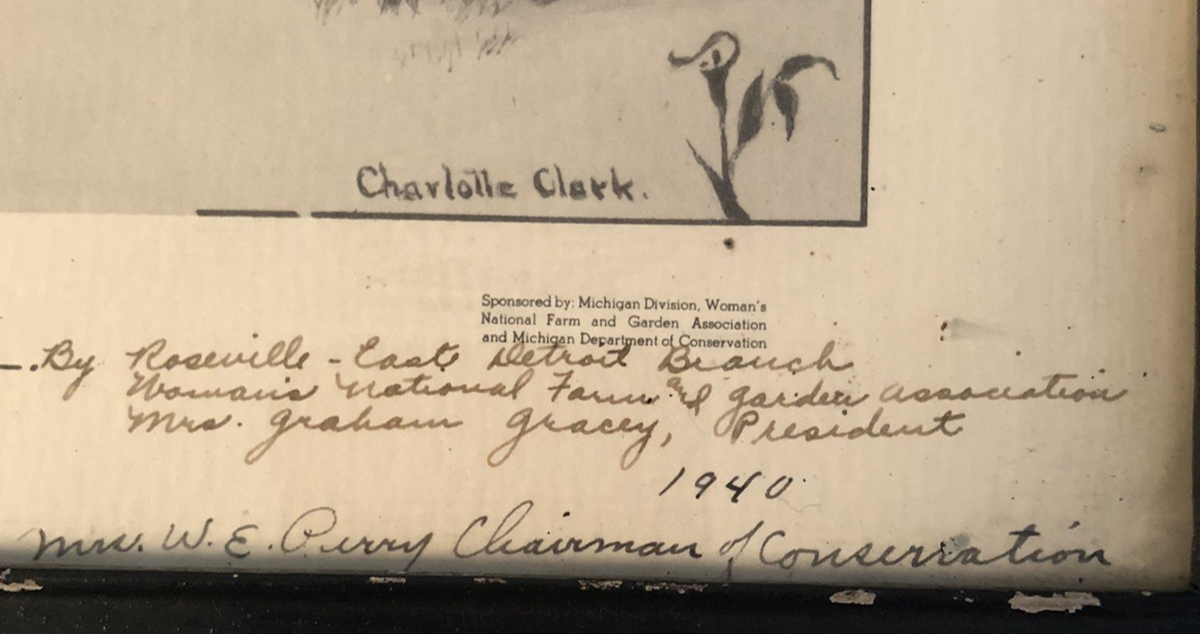 Charlotte Clark.
Sponsored by: Michigan Division, Woman's
National Farm and Garden Association
and Michigan Department of Conservation
By Roseville - East Detroit Branch
Woman's National Farm and Garden Association
Mrs. Graham Gracey, President
1940
Mrs. W. E. Perry Chairman of Conservation